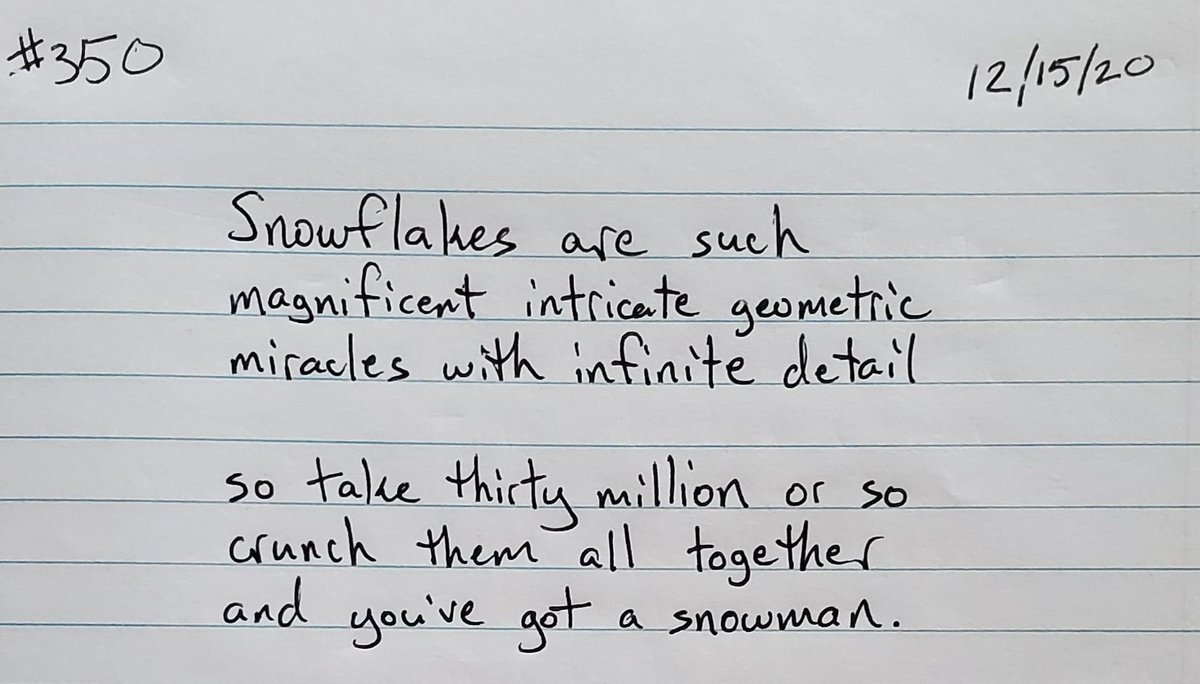 #350
12/15/20
Snowflakes are such
magnificent intricate geometric
miracles with infinite detail
so take thirty million or so
crunch them all together
and you've got a snowman.